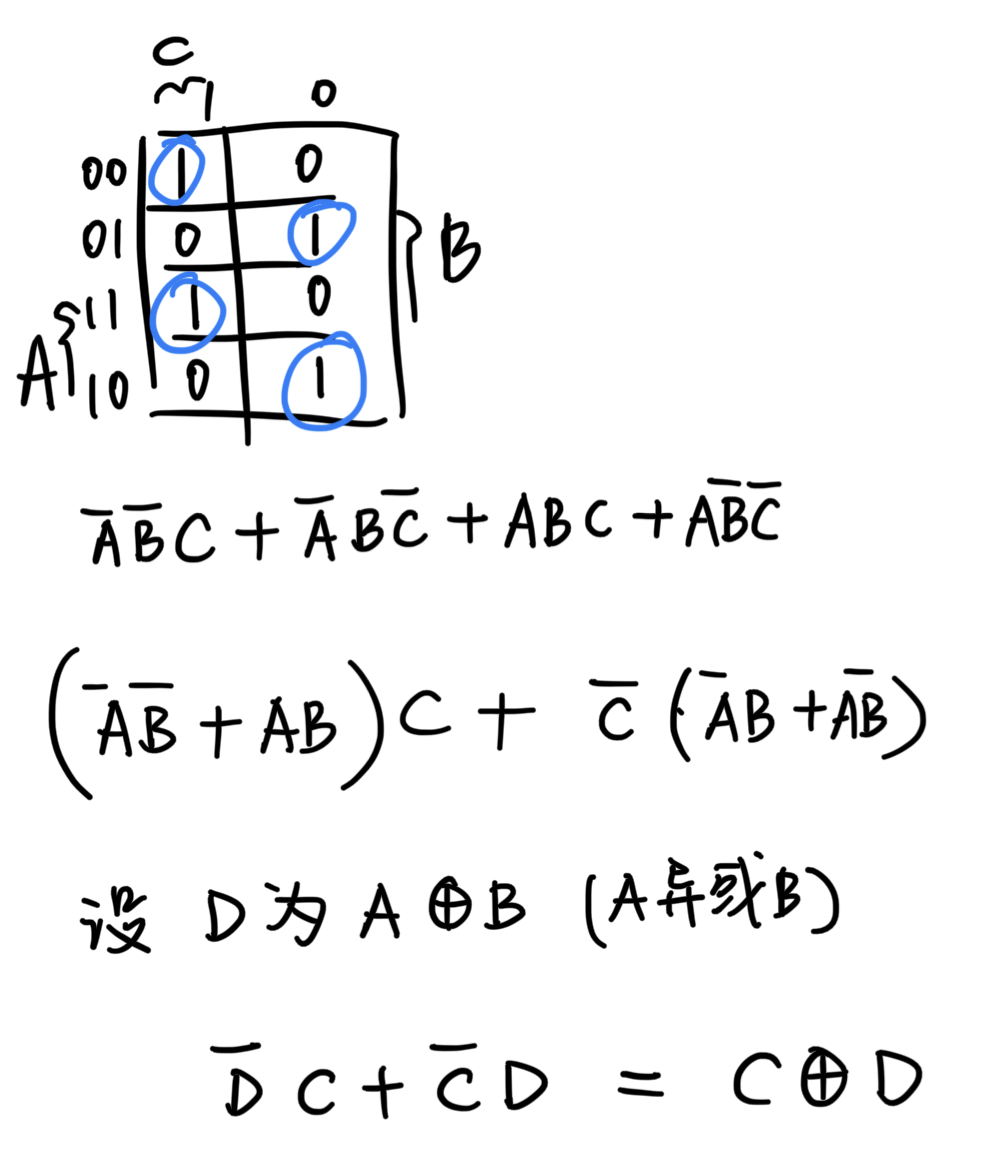 C
1 0
00 1 0
01 0 1 B
11 1 0
A
10 0 1
A̅ B̅ C + A̅ B C̅ + A B C + A B̅ C̅
(A̅ B̅ + AB) C + C̅ (A̅ B + A B̅)
设 D为 A ⊕ B (A异或B)
D̅ C + C̅ D = C ⊕ D